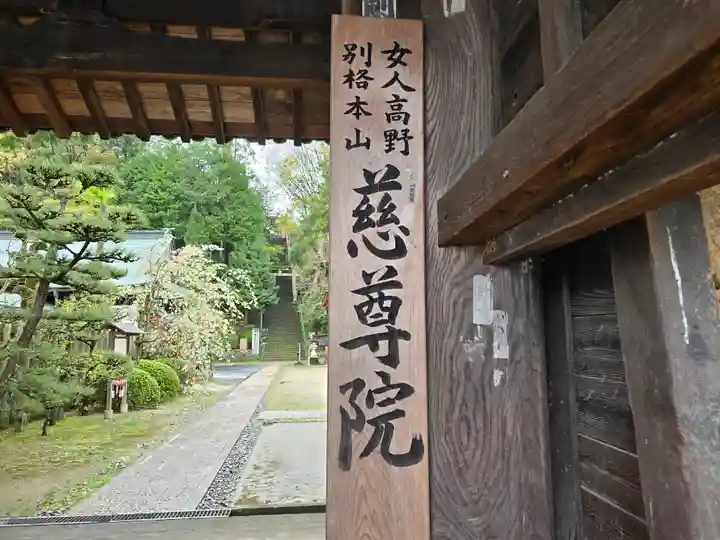 女人高野
別格本山
慈尊院